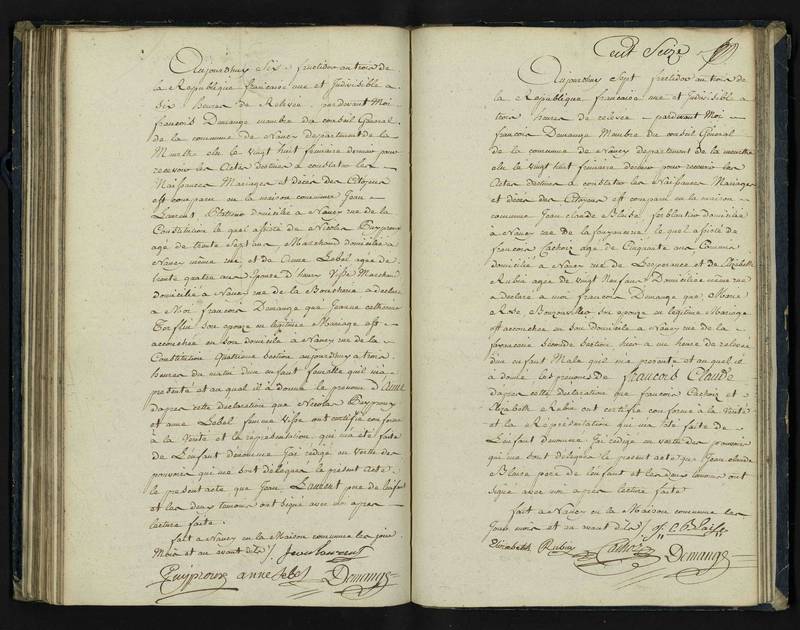 Aujourdhuy Six fructidor an trois de
la Republique francaise une et Indivisible a
Six heures de Relevée pardevant Moi
francois Demange membre du conseil General
de la commune de Nancy departement de la
Meurthe elu le vingt huit frimaire dernier pour
recevoir les Actes destinés a constater les
Naissances Mariages et décés des Citoyens
est comparu en la maison commune Jean
Laurent, domicilié a Nancy rue de la
Constitution le quel assisté de Nicolas Puyproux
agé de trente Sept ans Marchand domicilié a
Nancy même rue, et de Anne Lebel agée de
trente quatre ans Epouse d'henry Marchand
domicilié a Nancy rue de la Boucherie a declaré
a Moi francois Demange que Jeanne catherine
son epouse en legitime Mariage est
accouchée en son domicile à Nancy rue de la
Constitution Quatrieme Section aujourdhuy a trois
heures du matin d'un enfant femelle qu'il m'a
presenté et au quel il a donné le prenom d'Anne
d'apres cette declaration que Nicolas Puyproux
et anne Lebel femme ont certifié conforme
à la verité et la représentation qui m'a été faite
de L'enfant dénommé J'ai redigé en vertu des
pouvoirs qui me sont délegués le présent acte.
le present acte que Jean Laurent pere de l'enfant
et les deux temoins ont signé avec moi apres
lecture faite.
fait a Nancy en la Maison commune les jour
Mois et an avant dits Jean laurent
Puyproux anne lebel Demange
Cent Seize
Aujourdhuy Sept fructidor an trois de
la Republique francaise une et Indivisible a
trois heures de relevée pardevant Moi
francois Demange Membre du conseil General
de la commune de Nancy departement de la meurthe
elu le vingt huit frimaire dernier pour recevoir les
Actes destinés a constater les Naissances Mariages
et décés des Citoyens est comparu en la maison
commune Jean claude Blaise ferblantier domicilié
à Nancy rue de la fayencerie le quel assisté de
francois Cachoix agé de Cinquante ans Commis
domicilié a Nancy rue de L'esperance et de Elizabeth
Rubin agée de vingt Neuf ans Domiciliée même rue
a declaré a moi francois Demange que Marie
Rose Bouzonviller son epouse en legitime Mariage
est accouchée en son domicile a Nancy rue de la
fayencerie seconde Section hier a une heure de relevée
d'un enfant Male qu'il m'a presenté et au quel il
a donné les prenoms de francois Claude
d'apres cette declaration que francois Cachoix et
Elizabeth Rubin ont certifié conforme à la verité
et la Representation qui m'a été faite de
L'enfant denommé. J'ai redigé en vertu des pouvoirs
qui me sont délegués le present acte que Jean claude
Blaise pere de L'enfant et les deux temoins ont
signé avec moi après lecture faite
fait a Nancy en la Maison commune les
Jour mois et an avant dits J. C. Blaise
Elizabeth Rubin Cachoix Demange